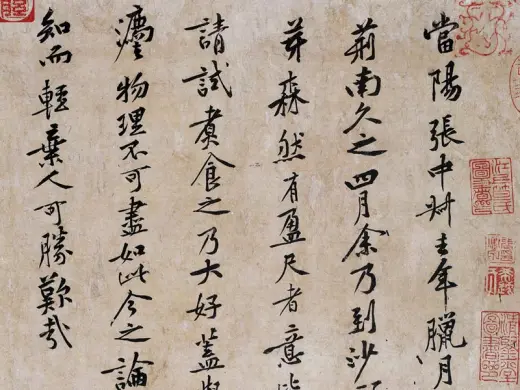 當陽張中叔去年臘月
荊南久之四月余乃到沙
芽森然有盈尺者意
請試煮食之乃大好蓋
灋物理不可盡如此今之論
知而輕棄人可勝歎哉